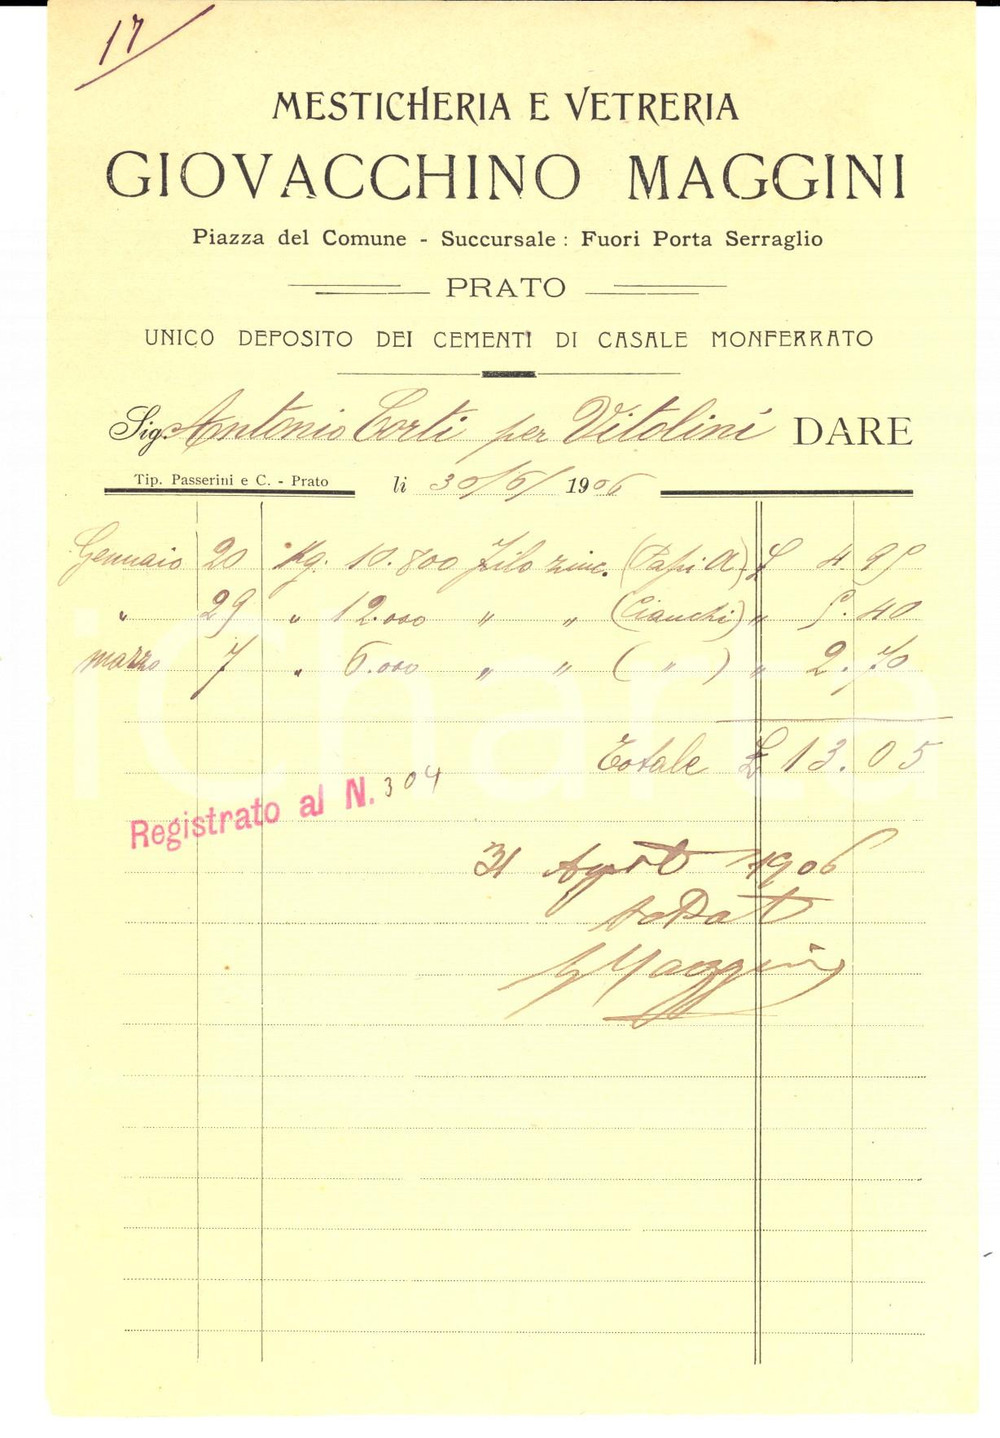 17
MESTICHERIA E VETRERIA
GIOVACCHINO MAGGINI
Piazza del Comune - Succursale: Fuori Porta Serraglio
PRATO
UNICO DEPOSITO DEI CEMENTI DI CASALE MONFERRATO
Sig. Antonio Corti per Vitolini DARE
Tip. Passerini e C. - Prato li 30/6/1906
Gennaio 20 Kg. 10.800 filo zinc. (Papi A.) £ 4.95
" 29 " 12.000 " " (Cianchi) " 5.40
marzo 7 " 6.000 " " ( " ) " 2.70
Totale £ 13.05
Registrato al N. 304
31 Agosto 1906
G Maggini
iCharta